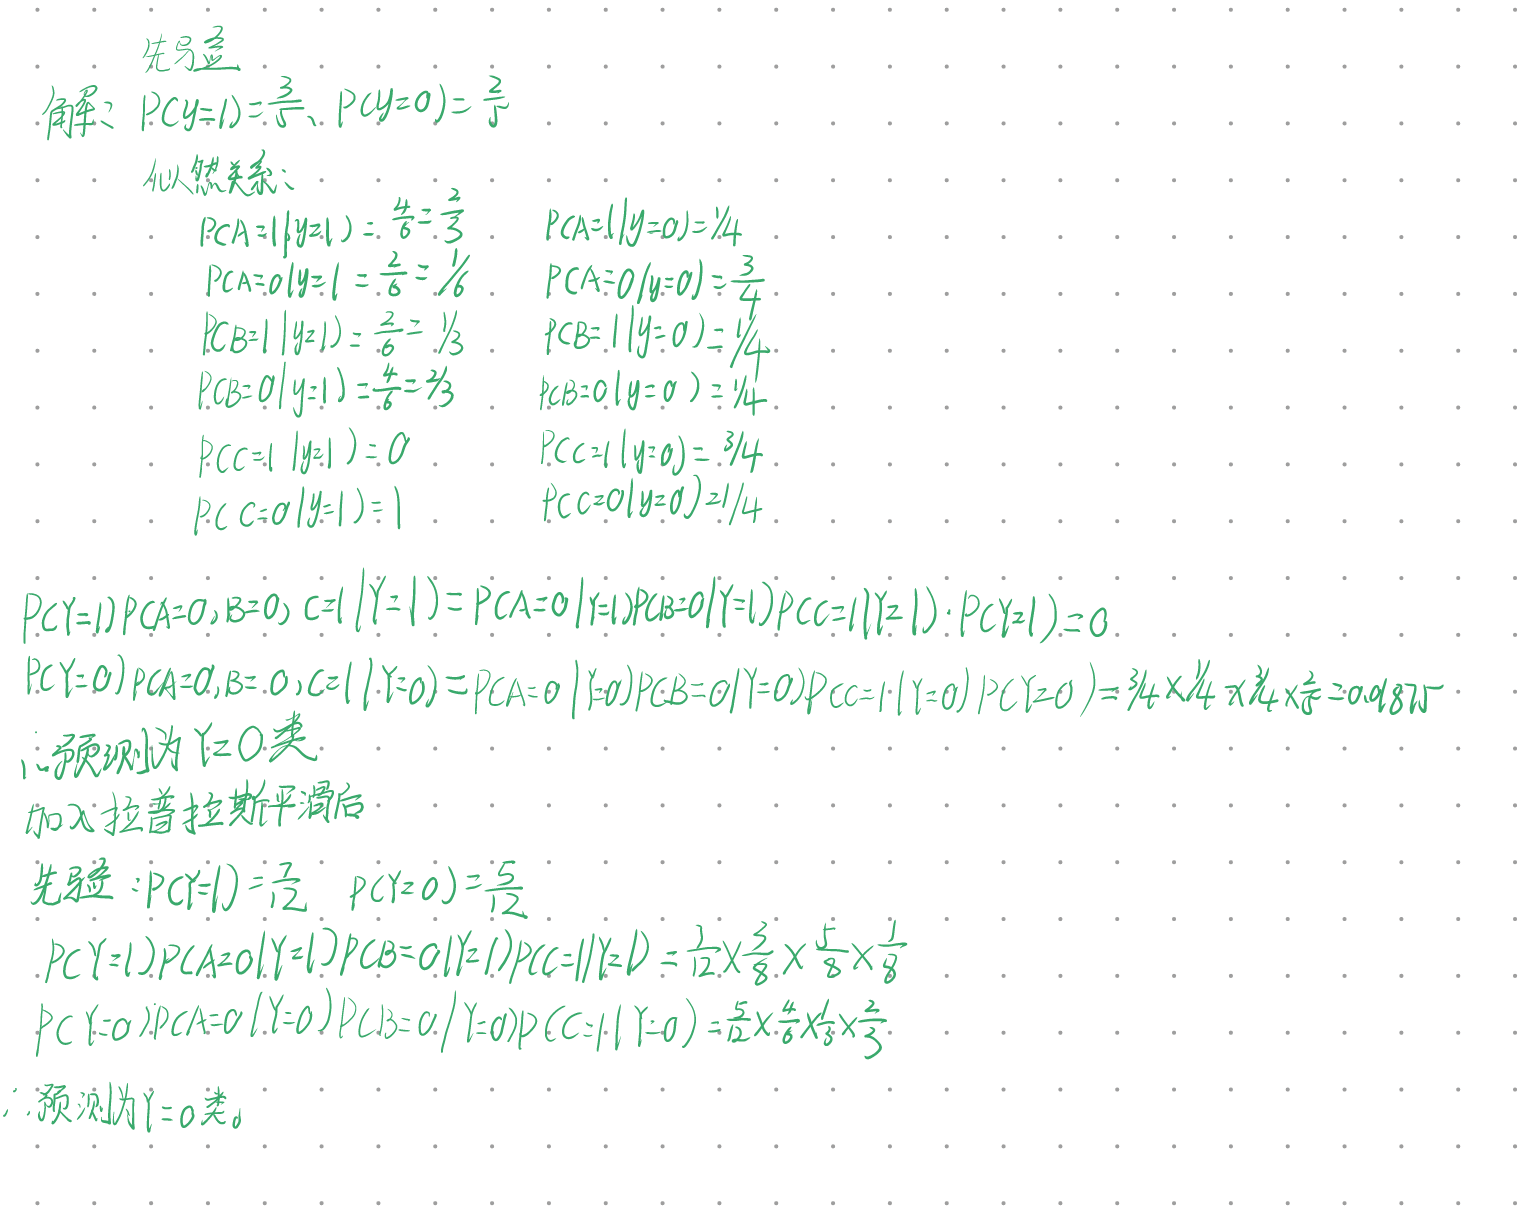 先验
解: P(y=1)=3/5、P(y=0)=2/5
似然关系:
P(A=1|y=1)=4/6=2/3 P(A=1|y=0)=1/4
P(A=0|y=1=2/6=1/6 P(A=0|y=0)=3/4
P(B=1|y=1)=2/6=1/3 P(B=1|y=0)=1/4
P(B=0|y=1)=4/6=2/3 P(B=0|y=0)=1/4
P(C=1|y=1)=0 P(C=1|y=0)=3/4
P(C=0|y=1)=1 P(C=0|y=0)=1/4
P(Y=1)P(A=0,B=0,C=1|Y=1)=P(A=0|Y=1)P(B=0|Y=1)P(C=1|Y=1)·P(Y=1)=0
P(Y=0)P(A=0,B=0,C=1|Y=0)=P(A=0|Y=0)P(B=0|Y=0)P(C=1|Y=0)P(Y=0)=3/4×1/4×3/4×2/5=
∴预测为Y=0类
加入拉普拉斯平滑后
先验:P(Y=1)=7/12 P(Y=0)=5/12
P(Y=1)P(A=0|Y=1)P(B=0|Y=1)P(C=1|Y=1)=7/12×3/8×5/8×1/8
P(Y=0)P(A=0|Y=0)P(B=0|Y=0)P(C=1|Y=0)=5/12×4/6×1/3×2/3
∴预测为Y=0类。